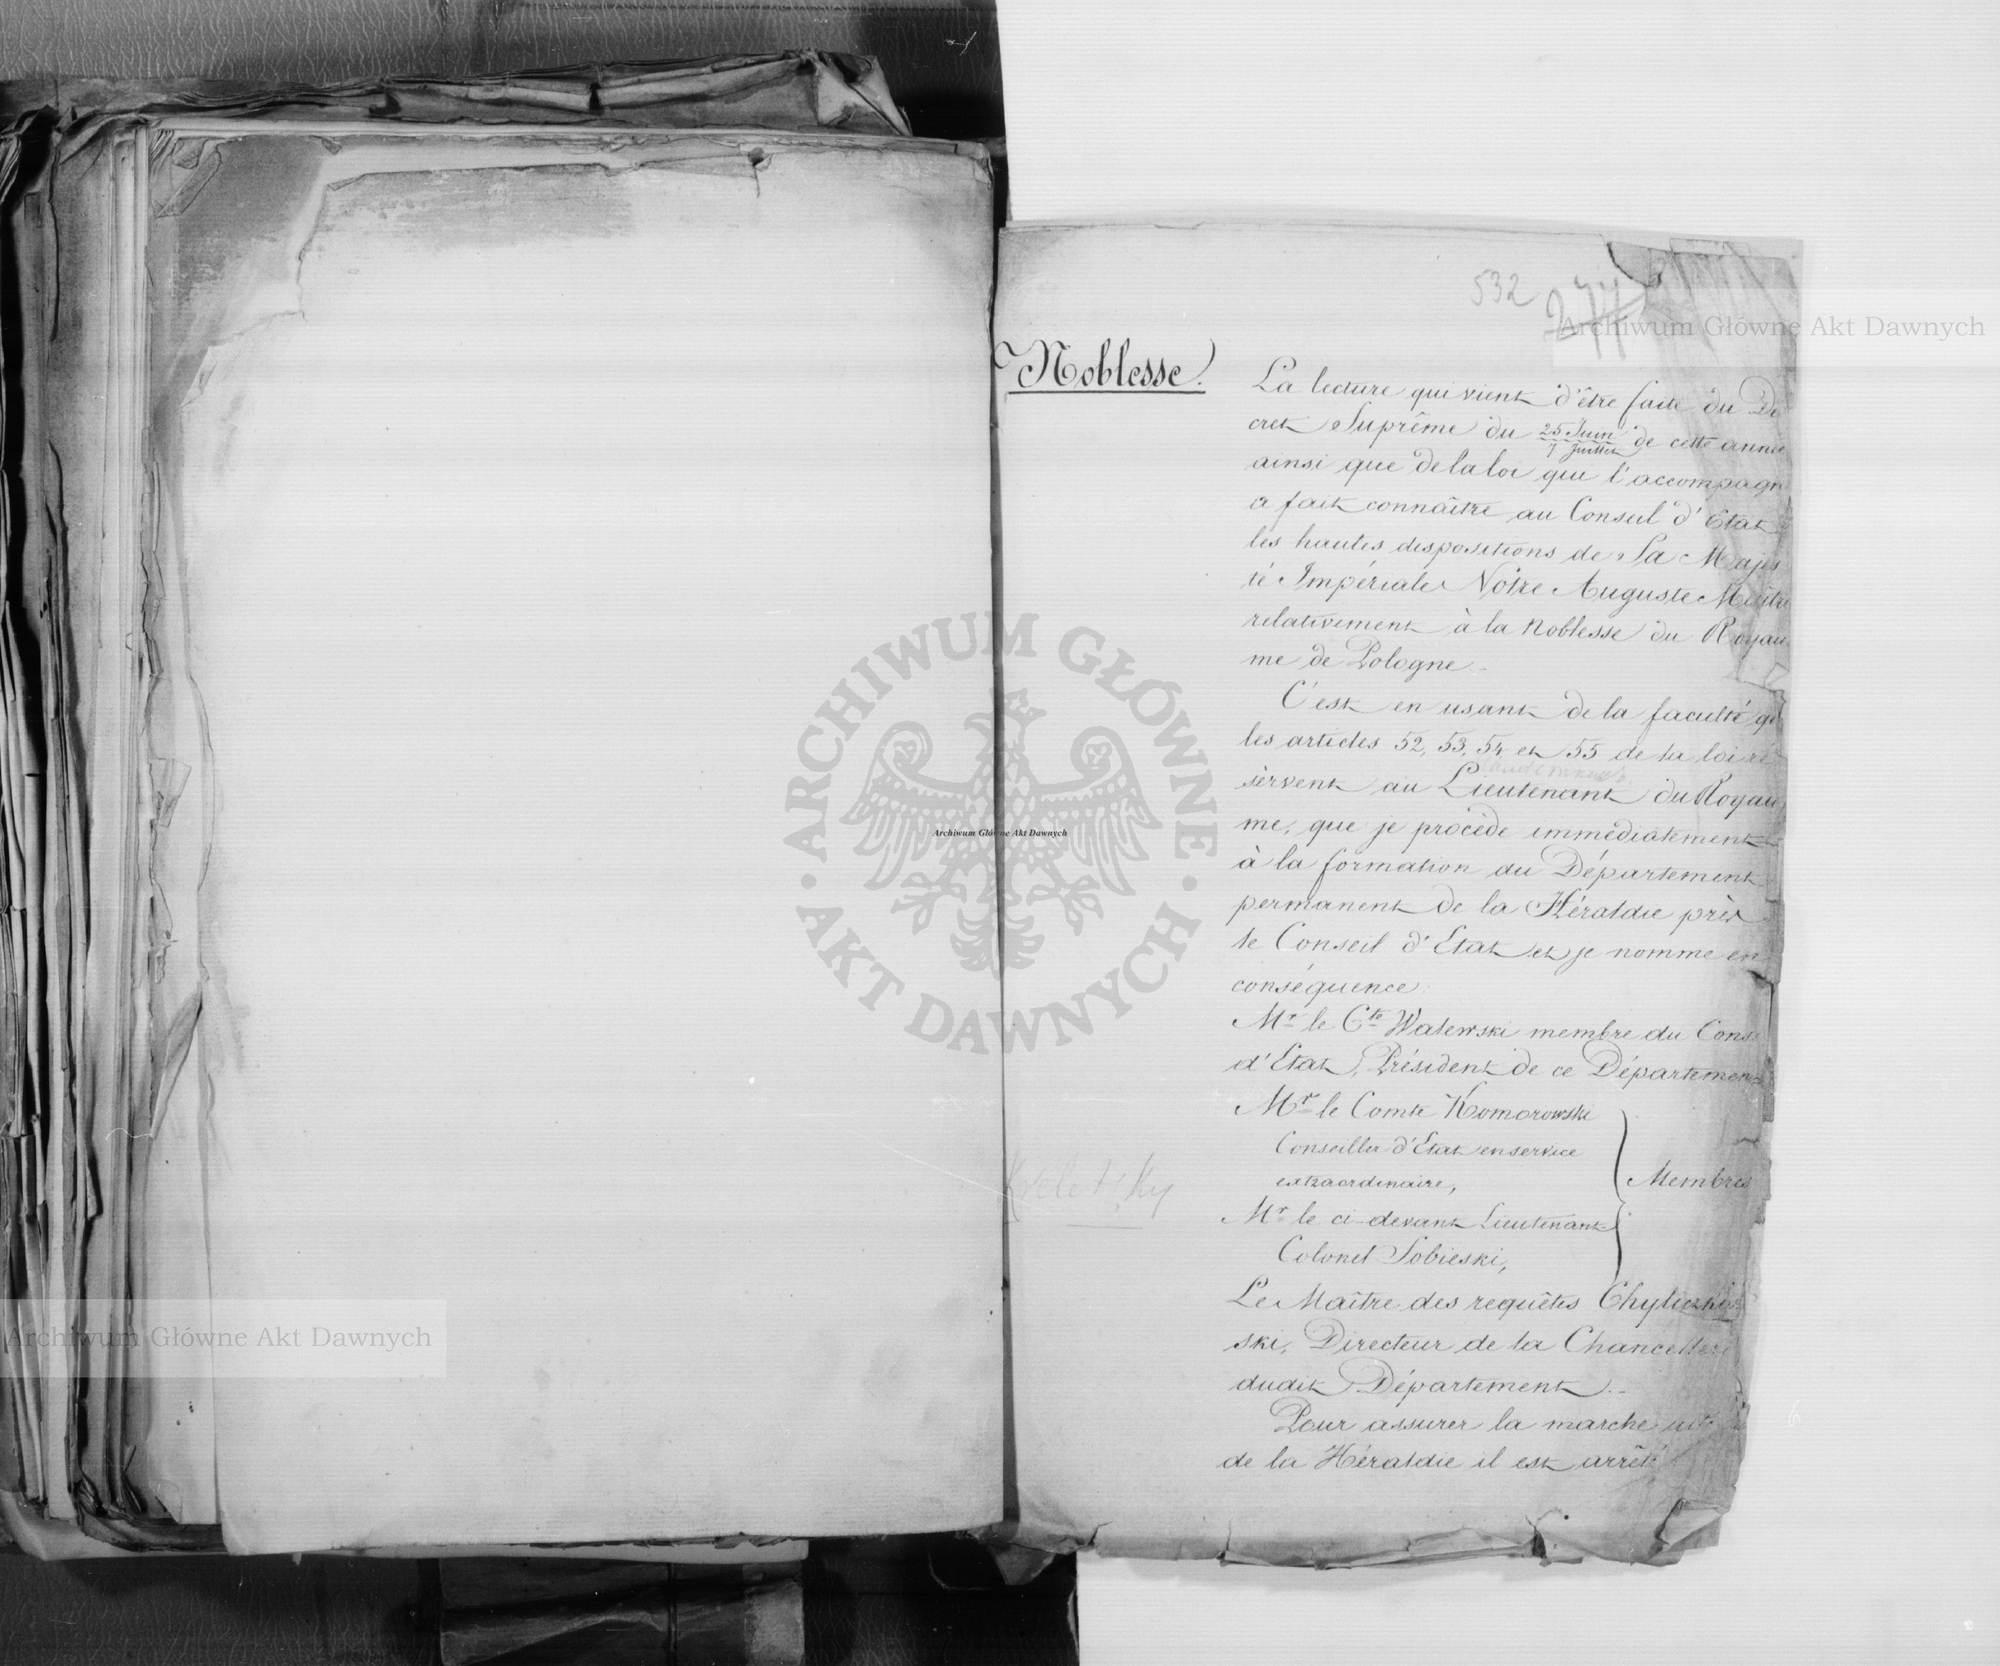 532
277
Noblesse.
La lecture qui vient d'être faite du De
cret Suprême du 25 Juin / 7 Juillet de cette année
ainsi que de la loi qui l'accompagn
a fait connaître au Conseil d'État
les hautes dispositions de Sa Majes
té Impériale Notre Auguste Maître
relativement à la Noblesse du Royau
me de Pologne.
C'est en usant de la faculté q
les articles 52, 53, 54 et 55 de la loi ré
servent au Lieutenant du Royau
me, que je procède immédiatement
à la formation du Département
permanent de la Héraldie près
le Conseil d'Etat et je nomme en
conséquence:
Mr le Cte Walewski membre du Conse
d'Etat, Président de ce Département
Mr le Comte Komorowski
Conseiller d'Etat en service
extraordinaire,
Membres
Mr le ci-devant Lieutenant
Colonel Sobieski,
Le Maître des requêtes
ski, Directeur de la Chancelleri
dudit Département.
Pour assurer la marche
de la Héraldie il est arrêté
Archiwum Główne Akt Dawnych
ARCHIWUM GŁÓWNE
AKT DAWNYCH
Archiwum Główne Akt Dawnych
Archiwum Główne Akt Dawnych